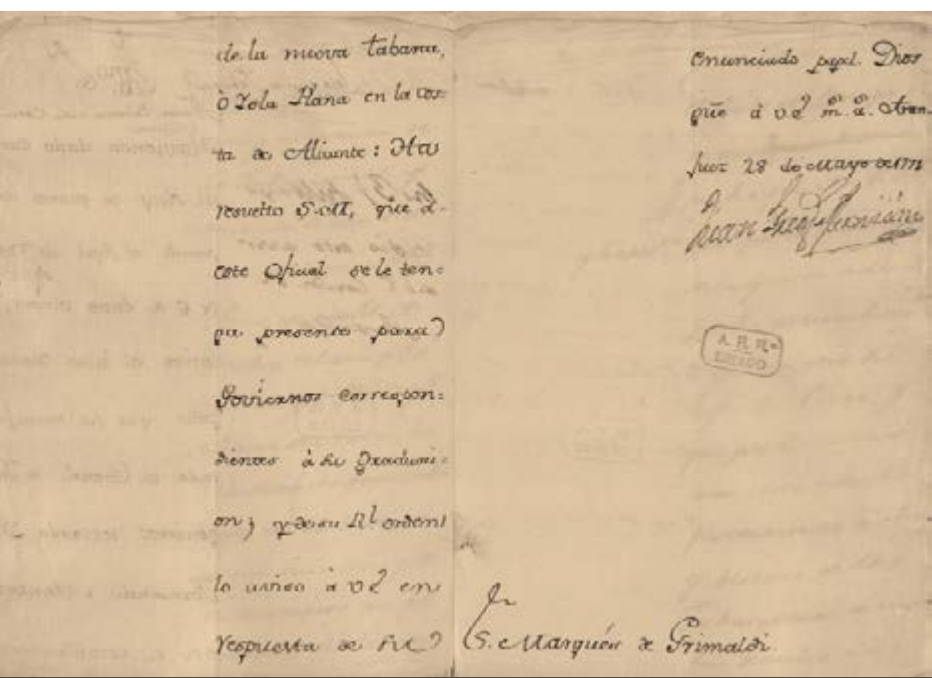 de la nueva Tabarca,
ò Isla Plana en la cos-
ta de Alicante: Ha
resuelto S.M. que à
este Oficial se le ten-
ga presente para
Goviernos correspon=
dientes à su Graduaci-
on; y de su Rl orden
lo aviso à V.E. en
respuesta de su
enunciado papel. Dios
gūe à V.E. ms. as. Aran-
juez 28 de Mayo de
Juan
A. H. N.
ESTADO
Sr. Marqués de Grimaldi.